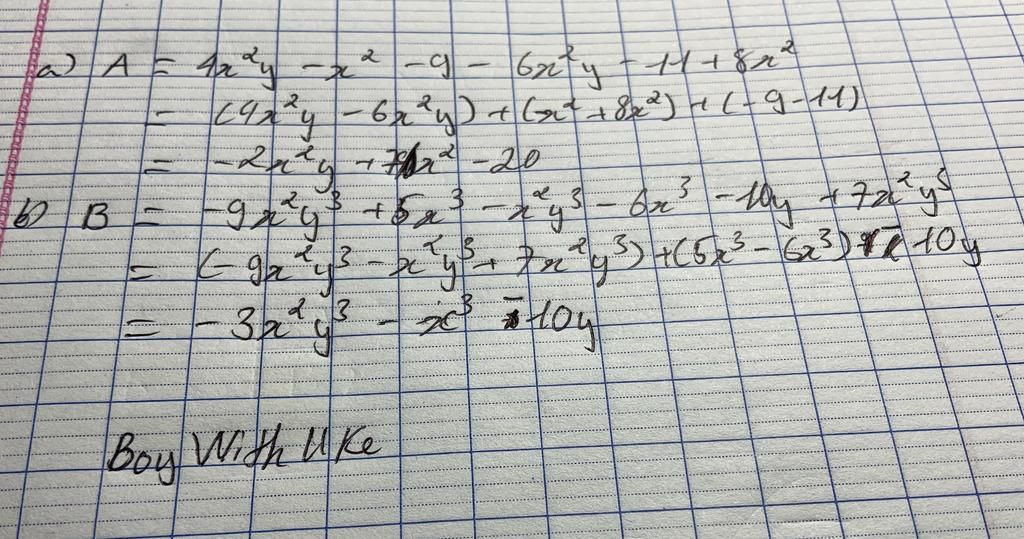 a) A = 4x²y - x² - 9 - 6x²y - 11 + 8x²
= (4x²y - 6x²y) + (x² + 8x²) + (-9 - 11)
= -2x²y + 7x² - 20
b) B = -9x²y³ + 5x³ - x²y³ - 6x³ - 10y + 7x²y³
= (-9x²y³ - x²y³ + 7x²y³) + (5x³ - 6x³) - 10y
= -3x²y³ - x³ - 10y
Boy With Uke